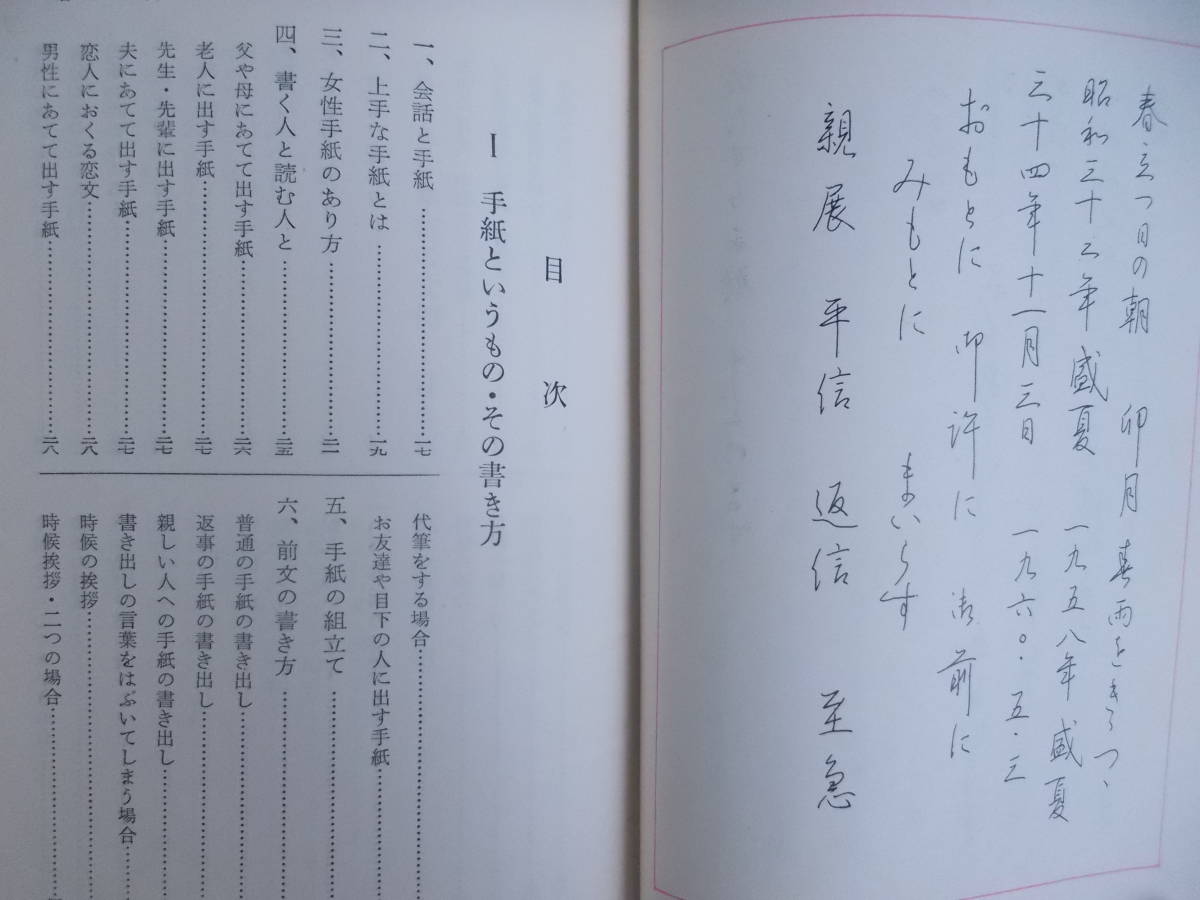 春立つ日の朝　卯月　春雨をきゝつゝ
昭和三十三年　盛夏　一九五八年　盛夏
三十四年十一月三日　一九六〇・五・三
おもとに　御許に　御前に
みもとに　まいらす
親展　平信　返信　至急
目次
Ⅰ　手紙というもの・その書き方
一、会話と手紙……一七
二、上手な手紙とは……一九
三、女性手紙のあり方……二一
四、書く人と読む人と……二五
父や母にあてて出す手紙……二六
老人に出す手紙……二七
先生・先輩に出す手紙……二七
夫にあてて出す手紙……二七
恋人におくる恋文……二八
男性にあてて出す手紙……二八
代筆をする場合……
お友達や目下の人に出す手紙……
五、手紙の組立て……
六、前文の書き方……
普通の手紙の書き出し……
返事の手紙の書き出し……
親しい人への手紙の書き出し……
書き出しの言葉をはぶいてしまう場合……
時候の挨拶……
時候挨拶・二つの場合……